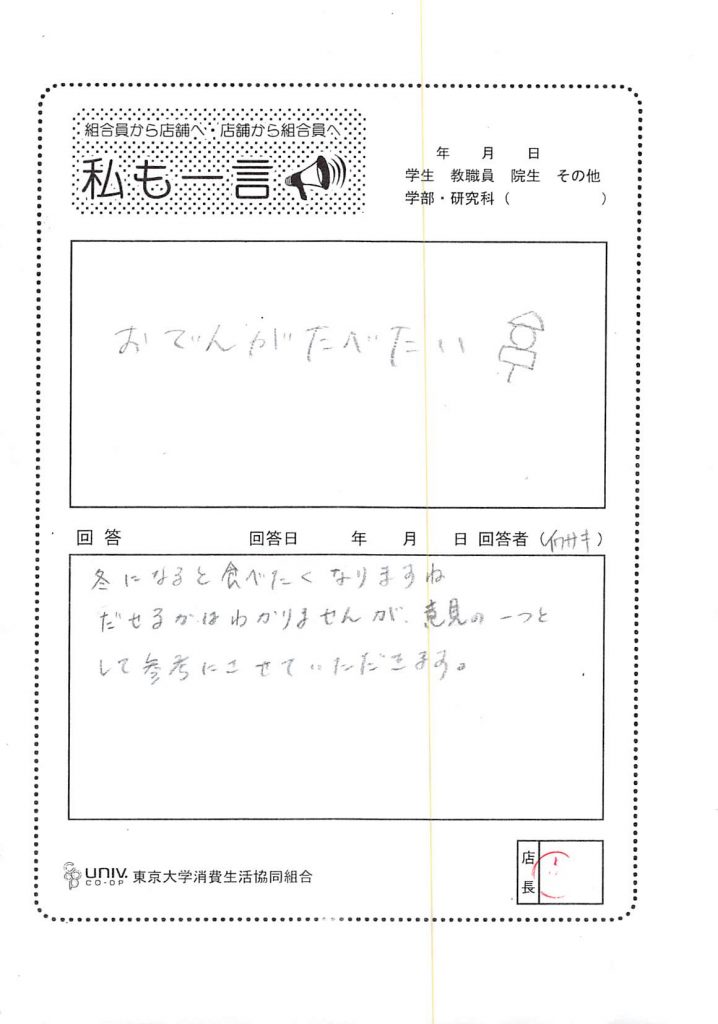 組合員から店舗へ・店舗から組合員へ
私も一言
年 月 日
学生 教職員 院生 その他
学部・研究科（ ）
おでんがたべたい
回答 回答日 年 月 日 回答者（イワサキ）
冬になると食べたくなりますね
だせるかはわかりませんが、意見の一つと
して参考にさせていただきます。
UNIV. CO-OP 東京大学消費生活協同組合
店長